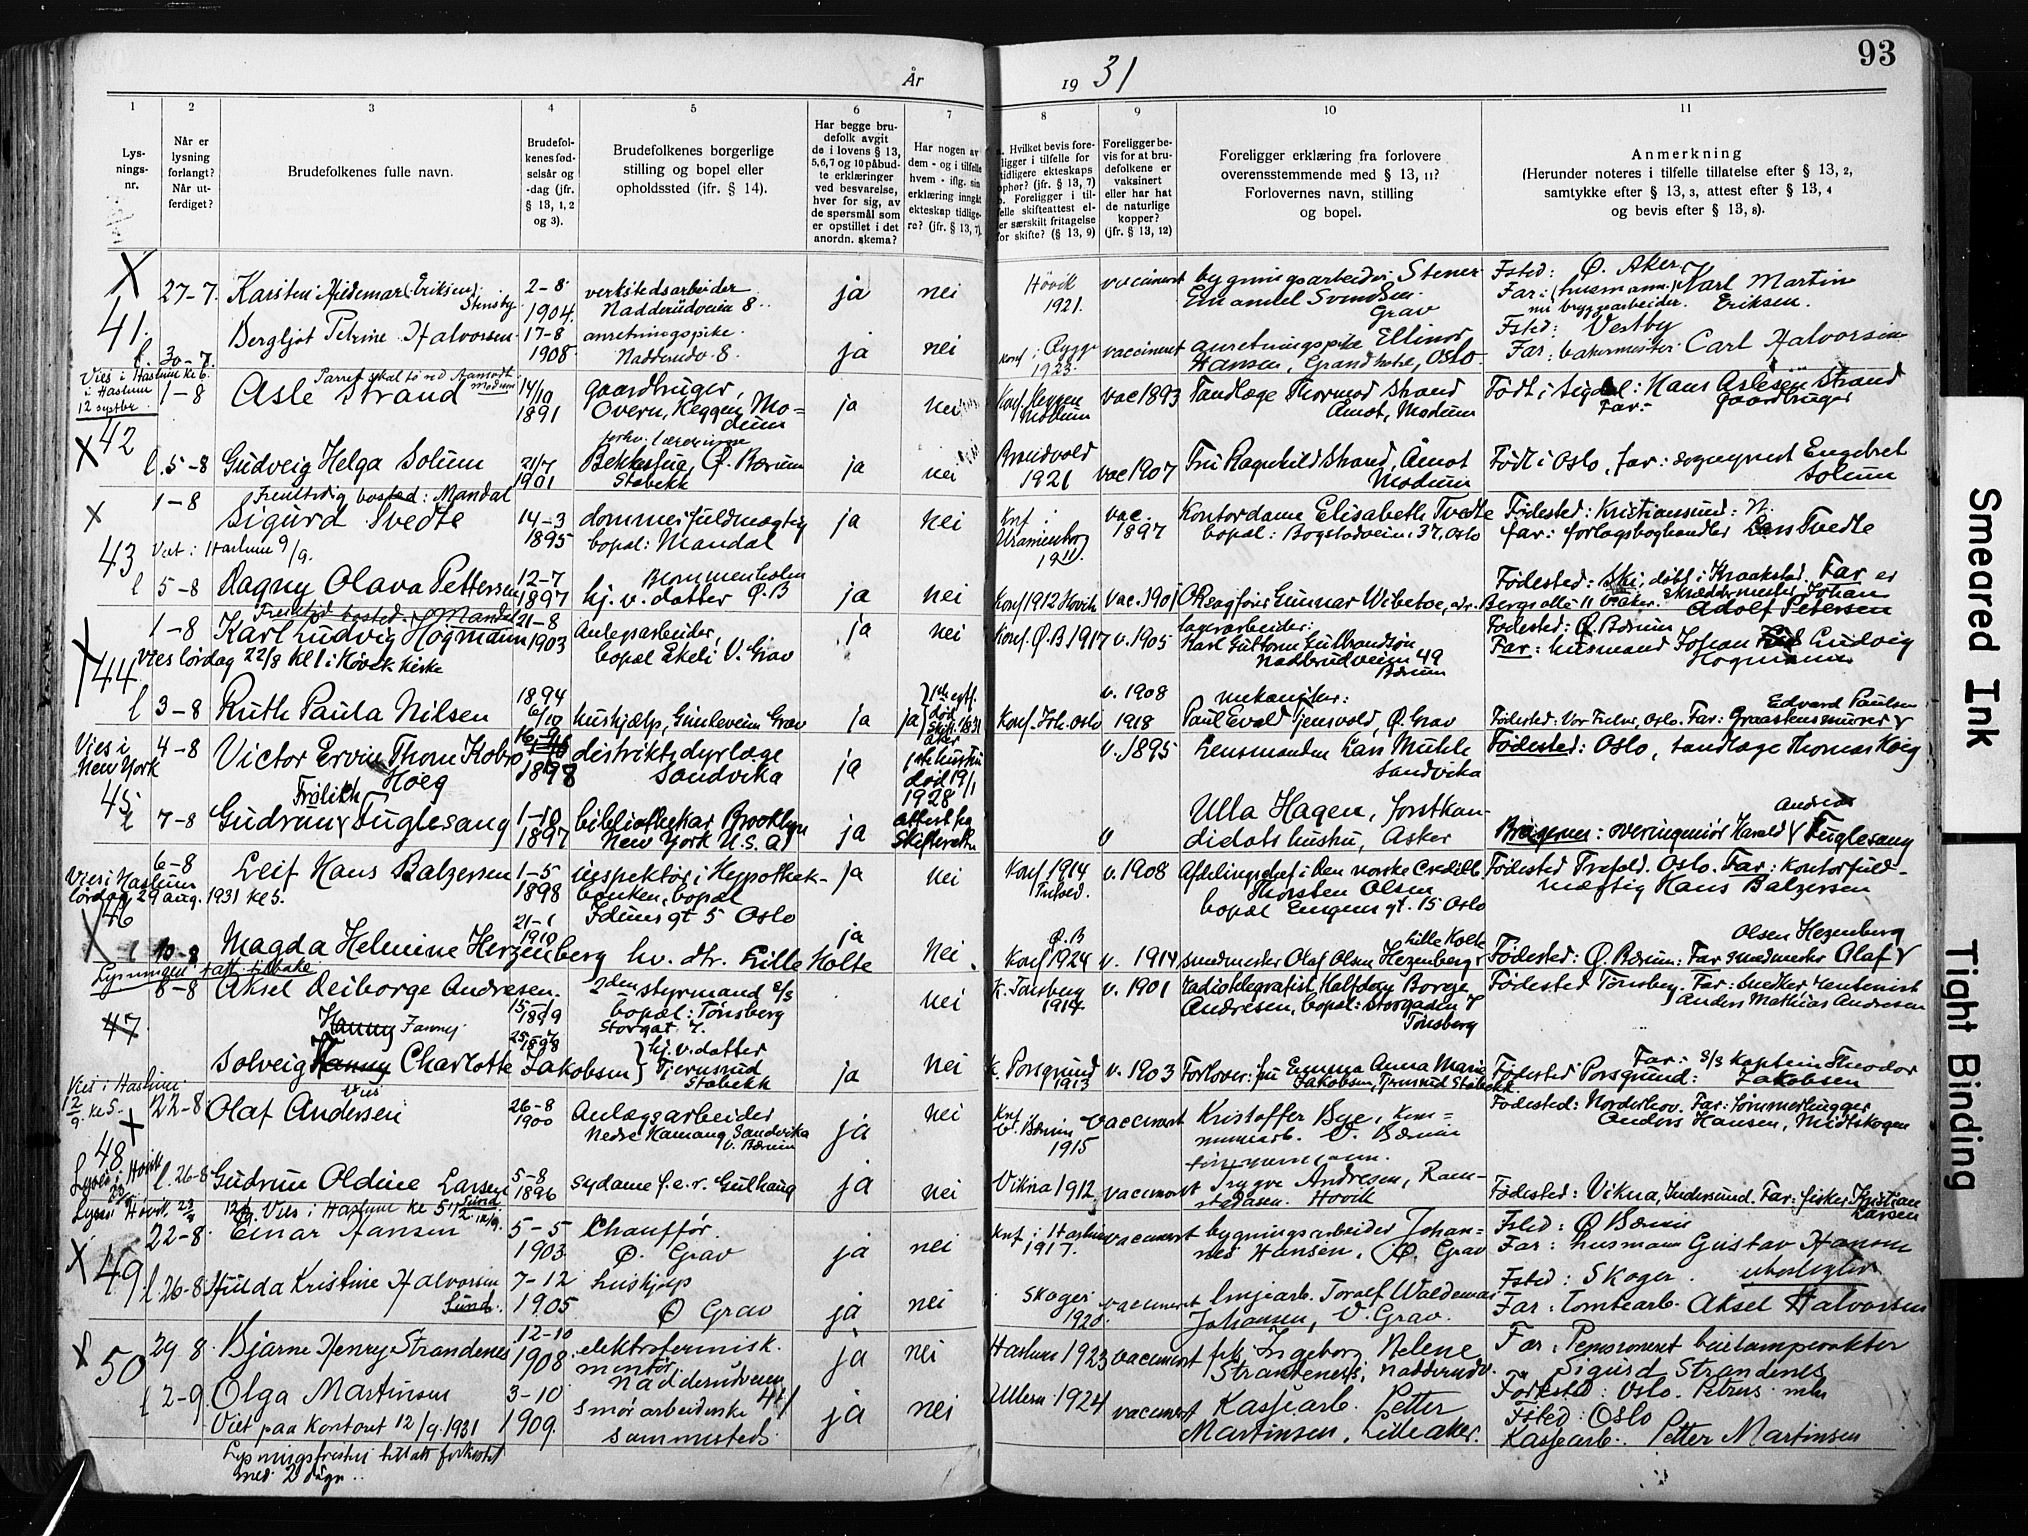 93
År
19 31
1 2 3 4 5 6 7 8 9 10 11
Lys-
nings-
nr.
Når er
lysning
forlangt?
Når ut-
ferdiget?
Brudefolkenes fulle navn.
Brudefol-
kenes fød-
selsår og
-dag (jfr.
§ 13, 1, 2
og 3).
Brudefolkenes borgerlige
stilling og bopel eller
opholdssted (jfr. § 14).
Har begge bru-
defolk avgit
de i lovens § 13,
5, 6, 7 og 10 påbud-
te erklæringer
ved besvarelse,
hver for sig, av
de spørsmål som
er opstillet i det
anordn. skema?
Har nogen av
dem - og i tilfelle
hvem - iflg. sin
erklæring inngått
ekteskap tidlige-
re? (jfr. § 13, 7).
Hvilket bevis fore-
ligger i tilfelle for
tidligere ekteskaps
ophør? (jfr. § 13, 7)
b. Foreligger i til-
felle skifteattest el-
ler særskilt fritagelse
for skifte? (§ 13, 9)
Foreligger be-
vis for at bru-
defolkene er
vaksinert
eller har hat
de naturlige
kopper?
(jfr. § 13, 12)
Foreligger erklæring fra forlovere
overensstemmende med § 13, 11?
Forlovernes navn, stilling
og bopel.
Anmerkning
(Herunder noteres i tilfelle tillatelse efter § 13, 2,
samtykke efter § 13, 3, attest efter § 13, 4
og bevis efter § 13, 8).
X
41.
27-7. Karsten Hildemar (Eriksen) Stensby
2-8
1904.
verkstedsarbeider
Nadderudveien 8.
ja nei
Høvik
1921.
vaccinert
bygningsarbeider Stener
Emanuel Svendsen
Grav
Fsted: Ø. Aker
Far: (husmann) Karl Martin
nu bryggearbeider. Eriksen.
l. 30-7. Bergljot Petrine Halvorsen
17-8
1908
anretningspike.
Nadderudv. 8.
ja nei
Konf. i Rygge
1923.
vaccineret
anretningspike Ellinor
Hansen, Grand hotel, Oslo
Fsted: Vestby
Far: bakermester Carl Halvorsen
Vies i Haslum
12 septbr
X 42
1-8 Asle Strand
14/10
1891
gaardbruger,
Overn, Heggen, Mo-
dum
ja nei
Konf. Heggen
Modum
vac 1893
Tandlæge Thormod Strand
Åmot, Modum
Født i Sigdal: Hans Aslesen Strand
Far: gaardbruger
l. 5-8 Gudveig Helga Solum
21/7
1901
forhv. lærerinne
Bekkestua, Ø. Bærum
Stabekk
ja nei
Brandvold
1921
vac 1907
Fru Ragnhild Strand, Åmot
Modum
Født i Oslo, far: sogneprest Engebret
Solum
x
43
1-8
Fremtidig bosted: Mandal
Sigurd Tvedte
14-3
1895
dommerfuldmægtig
bopæl: Mandal
ja nei
Knf. i
Uranienborg
1911
vac.
1897
Kontordame Elisabeth Tvedte
bopæl: Bogstadveien 37, Oslo
Fødested: Kristianssund: N.
far: forlagsboghandler Lars Tvedte
Viet i Haslum 9/9.
l 5-8 Dagny Olava Pettersen
12-7
1897
Blommenholm
hj. v. datter Ø. B
ja nei
Konf 1912 Høvik
vac. 1901
O.R.sagfører Gunnar Wibetoe, adr. Bergsallé 11 V. Aker.
Fødested: Ski, døbt i Kraakstad. Far er
Skræddermester Johan
Adolf Petersen
Fremtid. bosted: Mandal
X
44
1-8 Karl Ludvig Hogmann
21-8
1903
Anlegsarbeider,
bopæl Ekeli V. Grav
ja nei
Konf. Ø. B 1917
v. 1905
lagerarbeider:
Karl Guttorm Gulbrandsøn
Nadderudveien 49
Bærum
Fødested: Ø. Bærum
Far: husmand Johan Ludvig
Hogmann
Vies lørdag 22/8 kl 1 i Høvik kirke
l 3-8 Ruth Paula Nilsen
1894
6/10
hushjælp, Gunleveien Grav
ja ja
Konf. Joh. Oslo
v. 1908
1918
mekaniker:
Paul Evald Tjensvold, Ø. Grav
Edvard Paulsen
Fødested: Vor Frelser, Oslo. Far: Graastensmurer
Vies i
New York
45
4-8 Victor Ervin Thom Kobro
Høeg
1898
distriktsdyrlæge
Sandvika
ja
1ste hustru
død 19/1
1928
v. 1895
Lensmanden Lars Muhle
Sandvika
Fødested: Oslo, tandlæge Thomas Høeg
l 7-8 Frølich
Gudrun Fuglesang
1-10
1897
bibliothekar Brooklyn
New York U.S.A
ja
attest fra
Skifteretten
v
Ulla Hagen, forstkan-
didats hustru, Asker
Andreas
Bragernes: overingeniør Harald Fuglesang
Vies i Haslum
lørdag 29 aug. 1931 kl 5.
46
6-8 Leif Hans Balzersen
1-5
1898
inspektør i Hypothek-
banken, bopæl
Iduns gt 5 Oslo
ja nei
Konf 1914
v. 1908
Afdelingschef i Den norske Creditb.
Thorsten Olsen
bopæl Eugens gt. 15 Oslo
Fødested Trefold. Oslo. Far: Kontorfuld-
mægtig Hans Balzersen
X l 10-8 Magda Helmine Herzenberg
21-1
1910
hv. dtr. Lille Holte
ja Nei
Ø. B
Konf 1924
v. 1914
Lille Holte
smedmester Olaf Olsen Hezenberg
Olsen Hezenberg
Fødested: Ø. Bærum: Far smedmester Olaf
Lysningen tatt tilbake
47
8-8 Aksel Deiborge Andresen.
15-1
1899
2den styrmand s/s
bopæl: Tønsberg
Storgat 7.
nei
K. Tønsberg
1914
v. 1901
Radiotelegrafist Halfdan Borge
Andresen, bopæl: Storgaden 7
Tønsberg
Fødested Tønsberg. Far: Snedker Rentenist
Anders Mathias Andresen
Hanny Fanny
Solveig Hanny Charlotte Jakobsen
hj. v. datter
Tjernsrud
Stabekk
ja nei
K. Porsgrund
1913
v. 1903
Forlover: fru Emma Anna Marie
Jakobsen, Tjernsrud Stabekk
Far: S/S Kaptein Theodor
Fødested Porsgrund: Jakobsen
Vies i Haslum
12/9 kl 5.
x
48
22-8 Olaf Andersen
26-8
1900
Anlægsarbeider
Nedre Hamang Sandvika
V. Bærum
ja nei
Knf
V. Bærum
1915
vaccinert
Kristoffer Bye, Kom-
munearb. V. Bærum
tømmermann.
Fødested: Norderhov. Far: tømmerhugger
Anders Hansen, Midtskogen
l. 26-8 Gudrun Oldine Larsen
5-8
1896
sydame f.e.r. Gulhaug
ja nei
Vikna 1912
vaccinert
Trygve Andresen, Ram-
stadåsen. Høvik
Fødested: Vikna, Indersund. Far: fisker Kristian
Larsen
Vies i Haslum kl 5 1/2 12/9.
X 49
22-8. Einar Hansen
5-5
1903.
Chauffør.
Ø. Grav
ja nei
Knf i Haslum
1917.
vaccinert
bygningsarbeider Johan-
nes Hansen, Ø. Grav
Fsted: Ø Bærum
Far: husmann Gustav Hansen
l. 26-8 Hulda Kristine Halvorsen
Sund.
7-12
1905
hushjelp
Ø Grav
ja nei
Skoger
1920.
vaccineret
linjearb. Toralf Waldemar
Johansen, V. Grav.
Fsted: Skoger.
Far: Tomtearb. Aksel Halvorsen
50
29 8. Bjarne Henry Strandenes
12-10
1908
elektrotermisk.
montør
Nadderudveien
41
ja nei
Haslum 1923
vaccinert
frk. Ingeborg Helene
Strandenes, Nadderudv.
Far: Pensioneret
Sigurd Strandenes
Fødested: Oslo.
l 2-9 Olga Martinsen
3-10
1909.
Smørarbeiderske
sammesteds
ja nei
Ullern 1924
vaccinert
Kassearb. Petter
Martinsen, Lilleaker.
Fsted: Oslo
Kassearb. Petter Martinsen
Viet paa Kontoret 12/9 1931
Lysningsfristen tillatt forkortet
med 2 dage..
Smeared Ink
Tight Binding